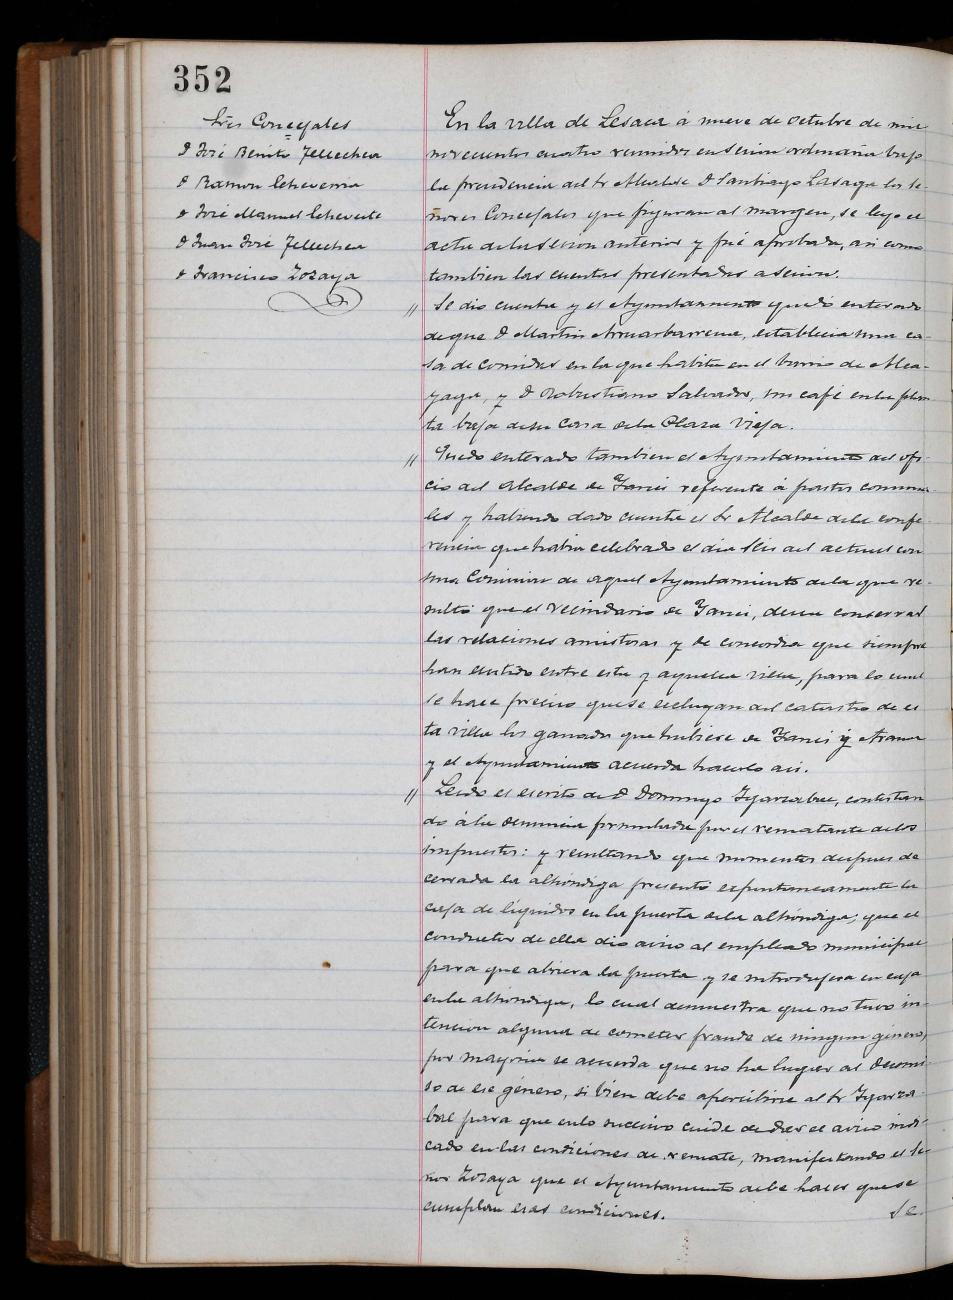 352
Sres Concejales
D José Benito Tellechea
D Ramon Echeverria
D José Manuel Echeveste
D Juan José Tellechea
D Francisco Zozaya
En la villa de Lesaca á nueve de Octubre de mil
novecientos cuatro reunidos en sesion ordinaria bajo
la presidencia del Sr Alcalde D Santiago Lasaga los se-
ñores Concejales que figuran al margen, se leyo el
acta de la sesion anterior y fué aprobada, asi como
tambien las cuentas presentadas a sesion.
" Se dio cuenta y el Ayuntamiento quedó enterado
de que D Martin Arruabarrena, establecia una ca-
sa de comidas en la que habita en el barrio de Alca-
yaga, y D Robustiano Salvador, un café en la plan
ta baja de su casa de la Plaza Vieja.
" Quedo enterado tambien el Ayuntamiento del ofi-
cio del Alcalde de Yanci referente á pastos comuna-
les y habiendo dado cuenta el Sr Alcalde de la confe-
rencia que habia celebrado el dia seis del actual con
una Comision de aquel Ayuntamiento de la que re-
sultó que el vecindario de Yanci, desea conservar
las relaciones amistosas y de concordia que siempre
han existido entre esta y aquella villa, para lo cual
se hace preciso que se excluyan del catastro de es
ta villa los ganados que hubiese de Yanci y Aranaz
y el Ayuntamiento acuerda hacerlo asi.
" Leido el escrito de D Domingo Yyarzabal, contestan
do á la denuncia formulada por el rematante de los
impuestos: y resultando que momentos despues de
cerrada la alhóndiga presentó expontaneamente la
caja de liquidos en la puerta de la alhóndiga; que el
conductor de ella dio aviso al empleado municipal
para que abriera la puerta y se introdujera la caja
en la alhóndiga, lo cual demuestra que no tuvo in-
tencion alguna de cometer fraude de ningun género,
por mayoria se acuerda que no ha lugar al decomi-
so de ese género, si bien debe apercibirse al Sr Yyarza-
bal para que en lo sucesivo cuide de dar el aviso indi-
cado en las condiciones de remate, manifestando el Se-
ñor Zozaya que el Ayuntamiento debe hacer que se
cumplan esas condiciones. Se